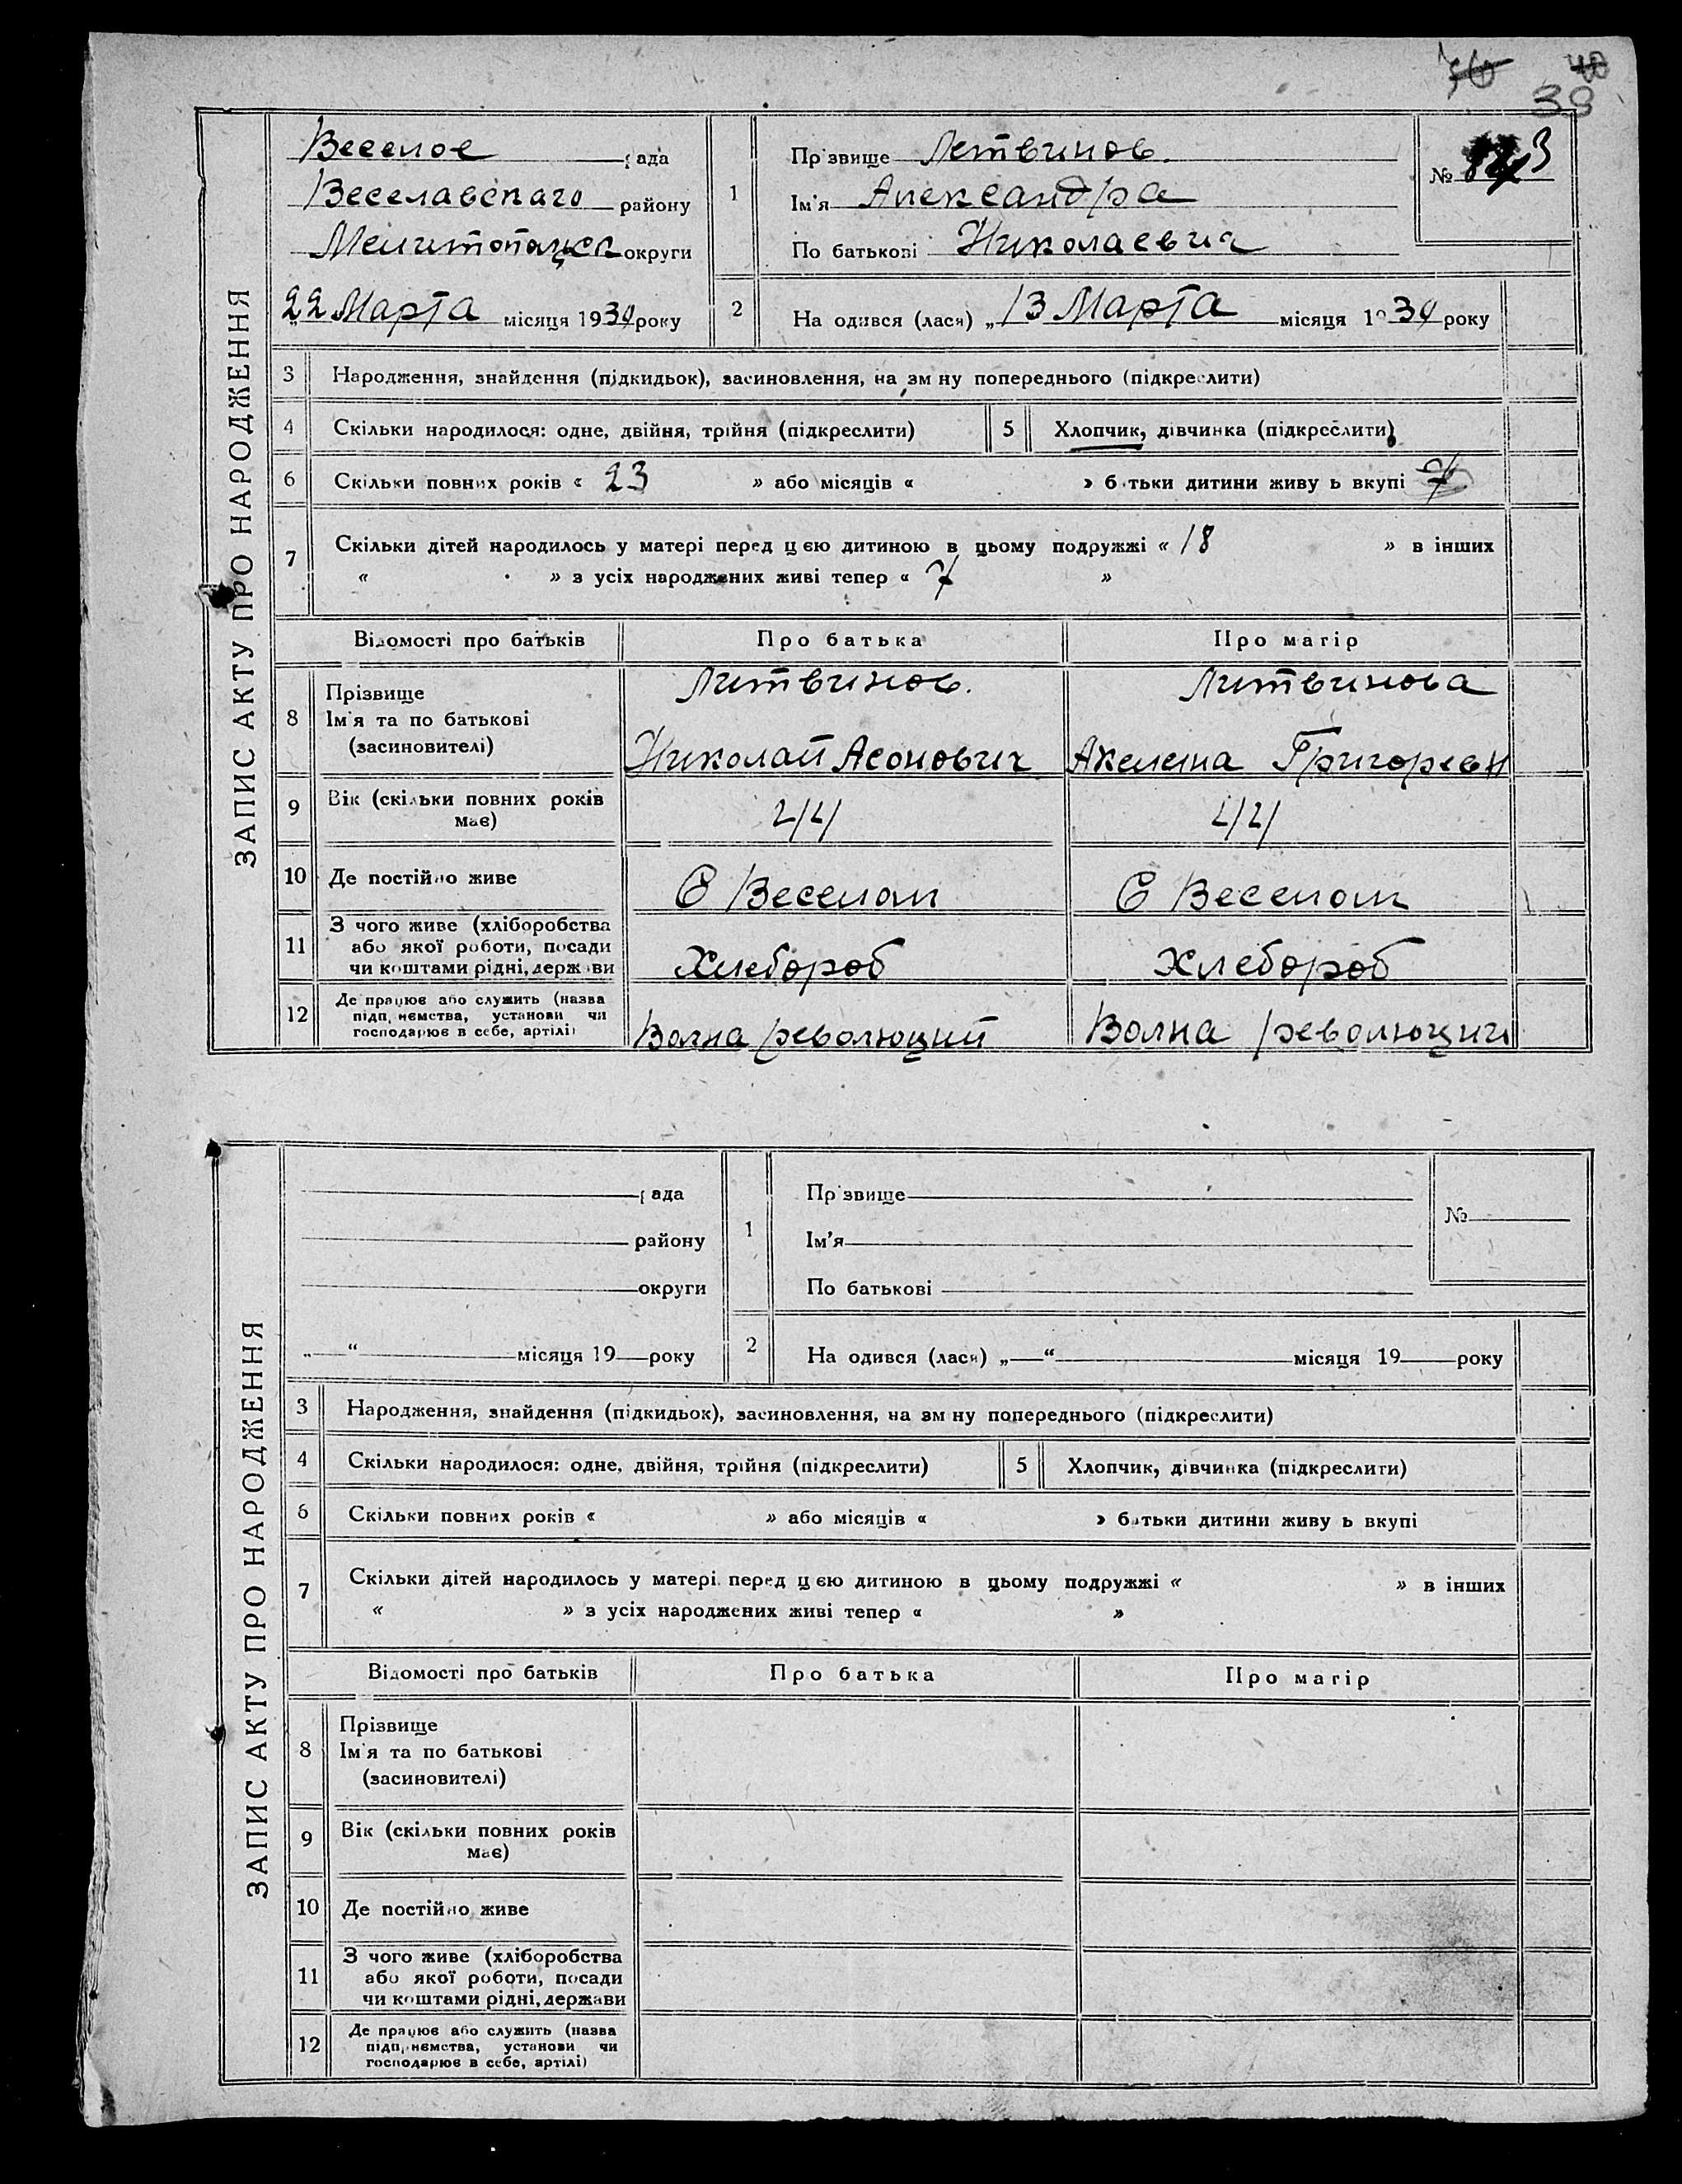 39
Веселое рада
Веселавскаго району
Мелитопольск округи
22 Марта місяця 1930 року
1
Прізвище Летвинов.
Ім'я Александра
По батькові Николаевич
№ 3
2 Народився (лася) „13 Марта місяця 1930 року
ЗАПИС АКТУ ПРО НАРОДЖЕННЯ
3 Народження, знайдення (підкидьок), засиновлення, на зміну попереднього (підкреслити)
4 Скільки народилося: одне, двійня, трійня (підкреслити) 5 Хлопчик, дівчинка (підкреслити)
6 Скільки повних років « 23 » або місяців « » батьки дитини живуть вкупі
7 Скільки дітей народилось у матері перед цією дитиною в цьому подружжі « 18 » в інших
« » з усіх народжених живі тепер « 7 »
Відомості про батьків Про батька Про матір
8 Прізвище
Ім'я та по батькові
(засиновителі)
Литвинов.
Николай Асонович
Литвинова
Акелина Григоревн
9 Вік (скільки повних років
має)
44
44
10 Де постійно живе С Веселом С Веселом
11 З чого живе (хліборобства
або якої роботи, посади
чи коштами рідні, держави
Хлебороб
Хлебороб
12 Де працює або служить (назва
підприємства, установи чи
господарює в себе, артілі)
Волна революций
Волна революции
рада
району
округи
„ “ місяця 19 року
1
Прізвище
Ім'я
По батькові
№
2 Народився (лася) „ “ місяця 19 року
ЗАПИС АКТУ ПРО НАРОДЖЕННЯ
3 Народження, знайдення (підкидьок), засиновлення, на зміну попереднього (підкреслити)
4 Скільки народилося: одне, двійня, трійня (підкреслити) 5 Хлопчик, дівчинка (підкреслити)
6 Скільки повних років « » або місяців « » батьки дитини живуть вкупі
7 Скільки дітей народилось у матері перед цією дитиною в цьому подружжі « » в інших
« » з усіх народжених живі тепер « »
Відомості про батьків Про батька Про матір
8 Прізвище
Ім'я та по батькові
(засиновителі)
9 Вік (скільки повних років
має)
10 Де постійно живе
11 З чого живе (хліборобства
або якої роботи, посади
чи коштами рідні, держави
12 Де працює або служить (назва
підприємства, установи чи
господарює в себе, артілі)